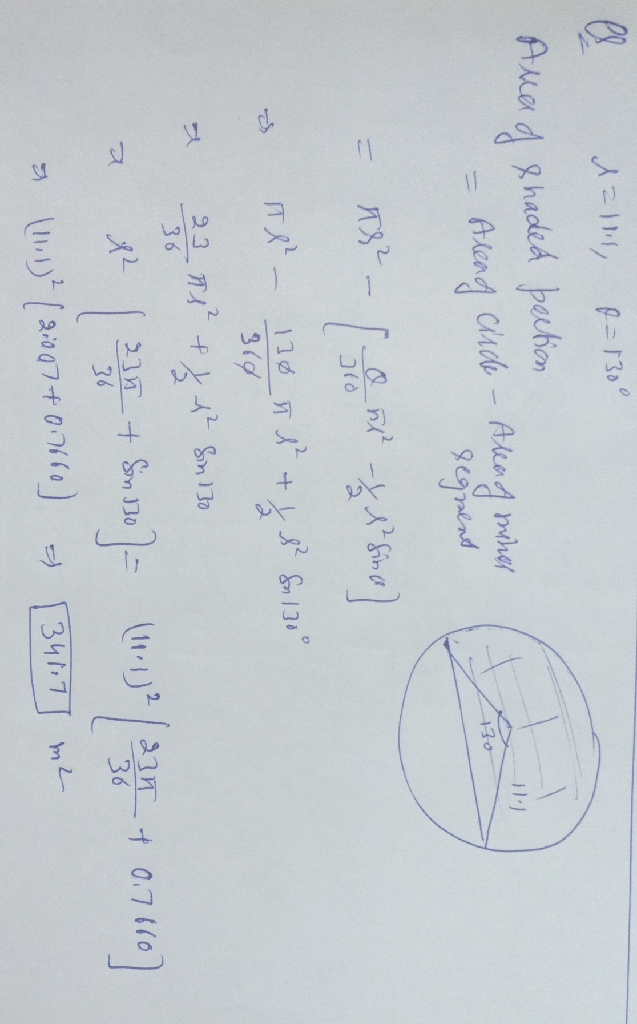 Q
r = 11.1, θ = 130°
Area of shaded portion
= Area of circle - Area of minor segment
130
11.1
= πr² - [θ/360 πr² - 1/2 r² sin θ]
⇒ πr² - 130/360 πr² + 1/2 r² Sin 130°
⇒ 23/36 πr² + 1/2 r² Sin 130
⇒ r² [23π/36 + Sin 130] = (11.1)² [23π/36 + 0.7660]
⇒ (11.1)² [2.007 + 0.7660] ⇒ 341.7 m²